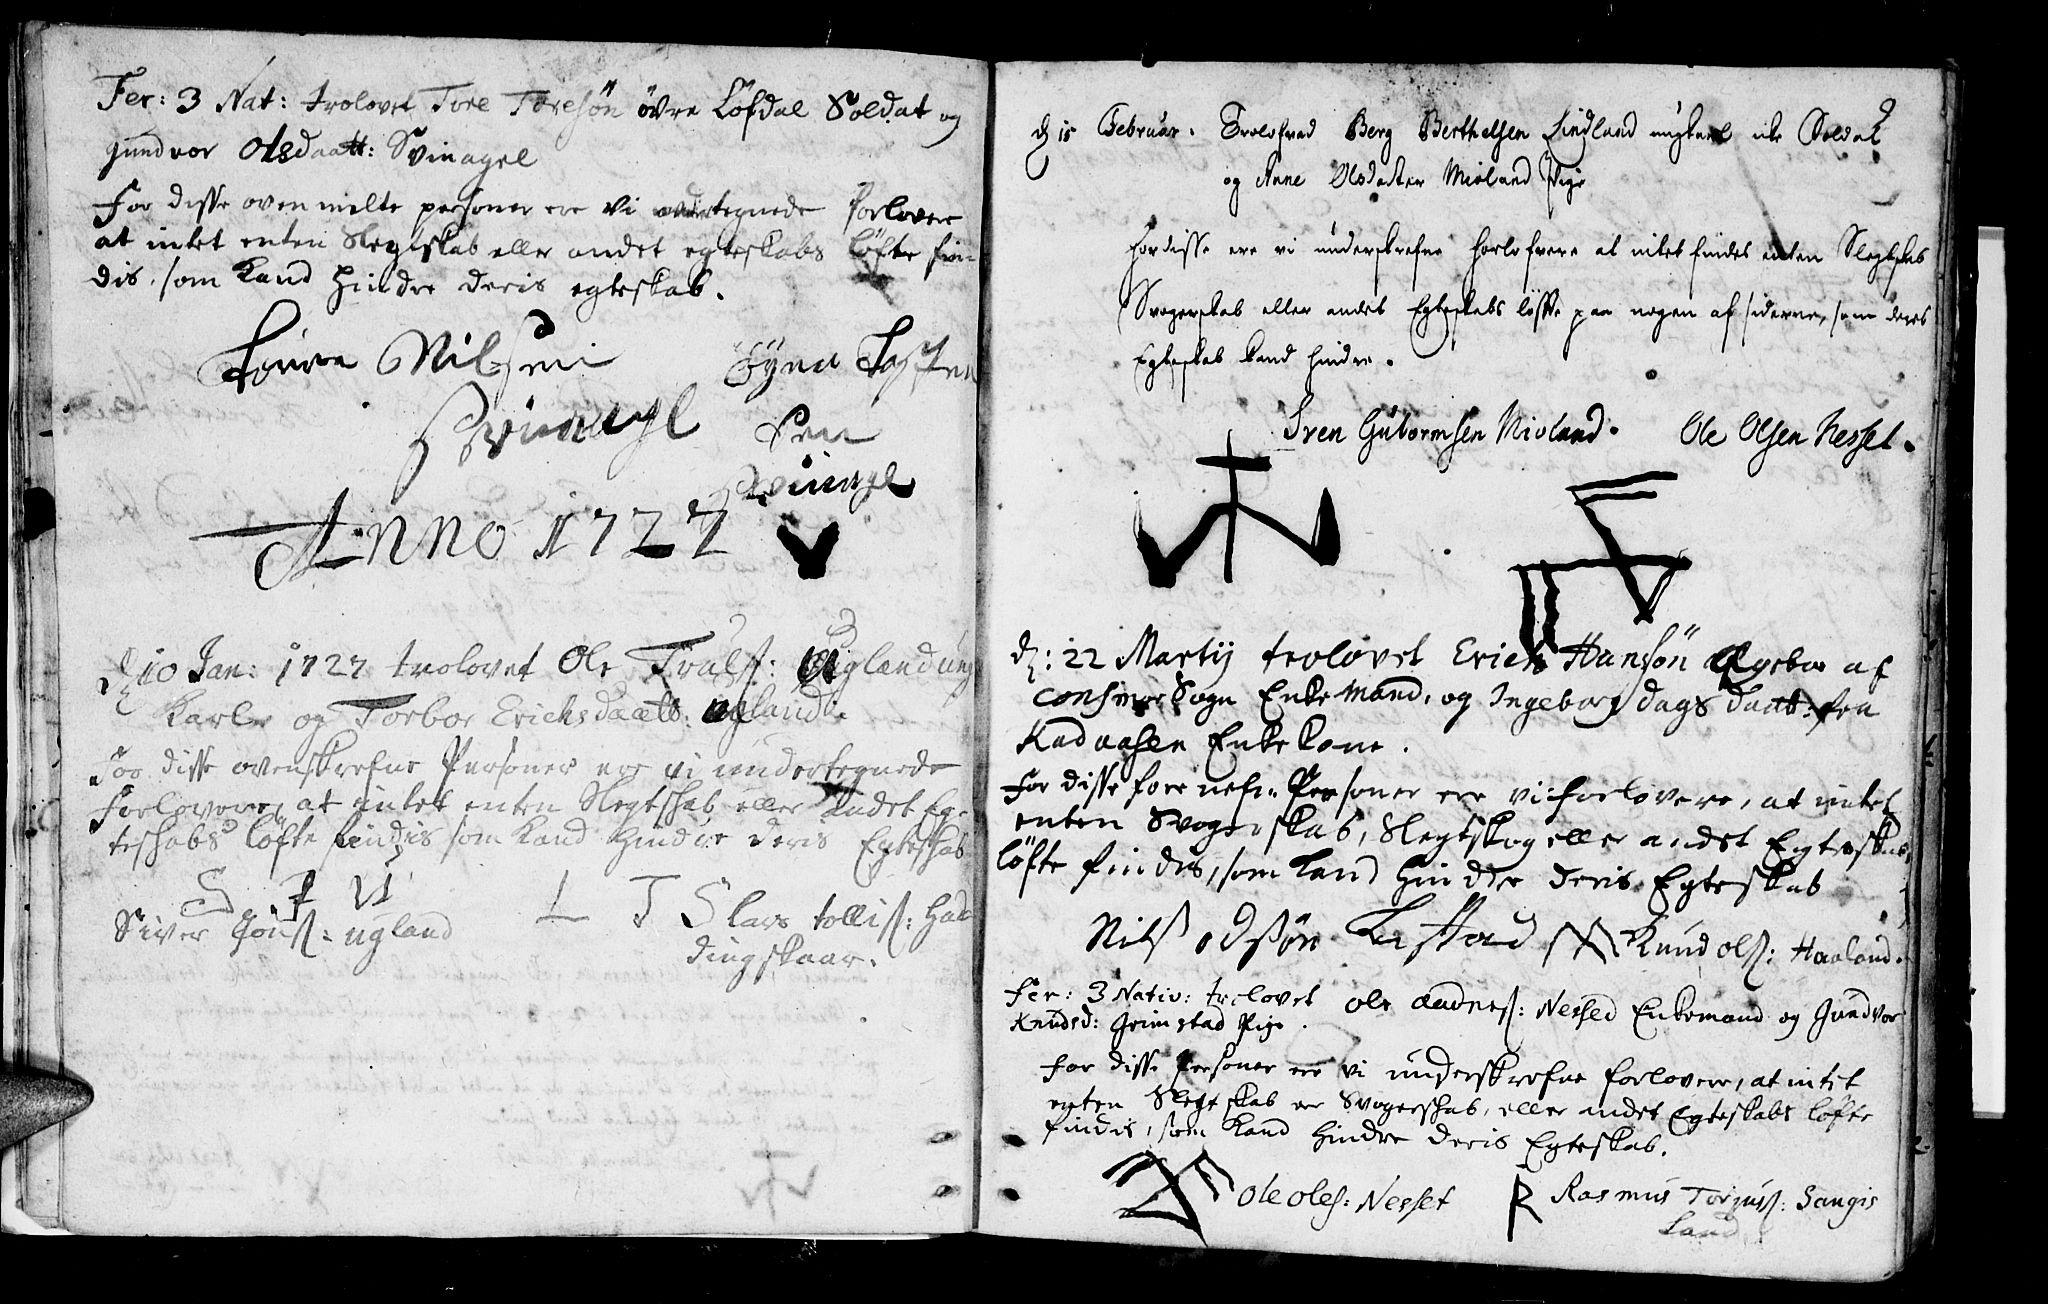 Fer: 3 Nat: trolovet Tore Toresön övre Löfdal Soldat og
gundvor Olsdaatt: Svinagel
For disse ovenmelte personer ere vi undertegnede forlovere
at intet enten Slegtskab eller andet egteskabs löfte fin-
dis, som kand hindre deris egteskab.
Nilsen
Svinagl Sen
Svinagl
Anno 1727
d 10 Jan: 1727 trolovet Ole Trulss: Uglend ung
karl og Torbor Erichsdaatt: Ugland.
For disse ovenskrefne Personer ere vi undertegnede
Forlovere, at intet enten Slegtschab eller andet Eg-
teschabs löfte findis som kand hindre deris Egteschab
S I U
L T
Siver Jönss: ugland
Slavs tolliss: Had
dingskaar.
2
d 15 Februar. Trolofved Berg Berthelsen Lindland ungkarl icke Soldat
og Anne Olsdatter Mioland Pige
For disse ere vi underskrefne Forlofvere at intet findes enten Slegtskab
Svogerskab eller andet Egteskabs löffte paa nogen af siderne, som deres
Egteskab kand hindre.
Sven Gutormsen Mioland. Ole Olsen Nesset.
d: 22 Martij trolovet Erich Hansön af
Sogn Enkemand, og Ingeborg dags daatt: fra
Kadaasen Enkekone.
For disse forenefn: Personer ere vi forlovere, at intet
enten Svogerskab, Slegtskog eller andet Egteskabs
löfte findis, som kand hindre deris Egteskab
Nilss odssön Knud olss: Haaland.
Fer: 3 Nativ: trolovet Ole Aadness: Nessed Enkemand og Gundvor
Knudsd: Grimstad Pige.
For disse Personer ere vi underskrefne forlovere, at intet
enten Slegtskab er Svogerschab, eller andet Egteskabs löfte
findis, som kand hindre deris Egteskab.
Ole oles: Nesset R Rasmus Torjuss: Sangis
land